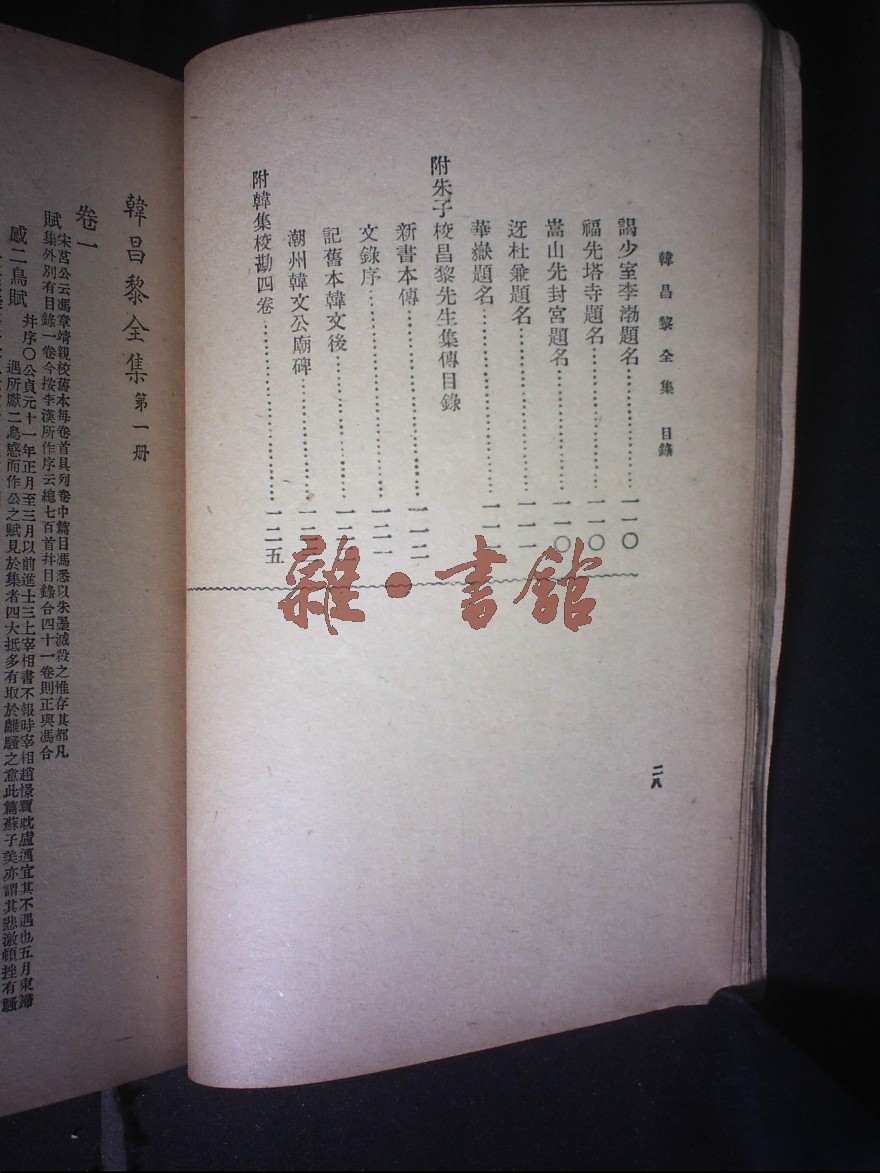 韓昌黎全集 目錄
謁少室李渤題名……………一一〇
福先塔寺題名……………一一〇
嵩山先封宮題名……………一一〇
迓杜兼題名……………一一一
華嶽題名……………一一一
附朱子校昌黎先生集傳目錄
新書本傳……………一一二
文錄序……………一二一
記舊本韓文後……………一二
潮州韓文公廟碑……………一二
附韓集校勘四卷……………一二五
二八
雜•書館
韓昌黎全集 第一册
卷一
宋莒公云馮章靖親校舊本每卷首具列卷中篇目馮悉以朱墨滅殺之惟存其都凡
賦集外別有目錄一卷今按李漢所作序云總七百首幷目錄合四十一卷則正與馮合
感二鳥賦 幷序〇公貞元十一年正月至三月以前進士三上宰相書不報時宰相趙憬賈耽盧邁宜其不遇也五月東歸
遇所獻二鳥感而作公之賦見於集者四大抵多有取於離騷之意此篇蘇子美亦謂其悲激頓挫有騷